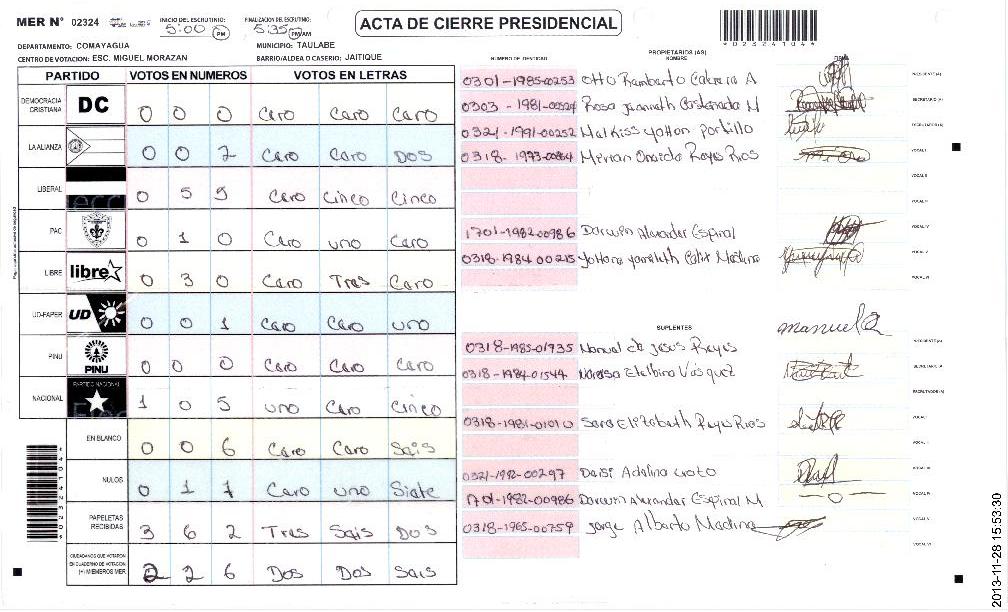 MER Nº 02324 INICIO DEL ESCRUTINIO: 5:00 PM FINALIZACION DEL ESCRUTINIO: 5:35 PM AM
ACTA DE CIERRE PRESIDENCIAL
*02324104*
DEPARTAMENTO: COMAYAGUA MUNICIPIO: TAULABE
CENTRO DE VOTACION: ESC. MIGUEL MORAZAN BARRIO/ALDEA O CASERIO: JAITIQUE
PARTIDO VOTOS EN NUMEROS VOTOS EN LETRAS
DEMOCRACIA CRISTIANA DC 0 0 0 Caro Caro Caro
LA ALIANZA 0 0 2 Caro Caro Dos
LIBERAL 0 5 5 Caro Cinco Cinco
PAC 0 1 0 Caro uno Caro
LIBRE libre 0 3 0 Caro Tres Caro
UD-FAPER UD 0 0 1 Caro Caro uno
PINU PINU 0 0 0 Caro Caro Caro
NACIONAL PARTIDO NACIONAL 1 0 5 uno Caro Cinco
EN BLANCO 0 0 6 Caro Caro Sais
NULOS 0 1 7 Caro uno Siate
PAPELETAS RECIBIDAS 3 6 2 Tres Sais Dos
CIUDADANOS QUE VOTARON EN CUADERNO DE VOTACION (+) MIEMBROS MER 2 2 6 Dos Dos Sais
NUMERO DE IDENTIDAD PROPIETARIOS (AS) NOMBRE FIRMA
0301-1985-00253 Otto Ramberto Cabrera A PRESIDENTE (A)
0303-1981-00524 Rosa Janneth Castanada M SECRETARIO (A)
0321-1991-00252 Malkiss yotton portillo ESCRUTADOR (A)
0318-1973-00864 Mirian Onaida Reyes Rios VOCAL I
VOCAL II
VOCAL III
1701-1982-00986 Darwin Alexander Espinal VOCAL IV
0318-1984-00215 yohana yamileth Calix Madina VOCAL V
VOCAL VI
SUPLENTES
0318-1985-01735 Manual de jesus Reyes manuel R PRESIDENTE (A)
0318-1984-01544 Narasa Etelbina Vasquez SECRETARIO (A)
ESCRUTADOR (A)
0318-1981-01010 Sara Elizabath Reyes Rios VOCAL I
VOCAL II
0321-1992-00297 Daisi Adalina VOCAL III
1701-1982-00986 Darwin Alexander Espinal M VOCAL IV
0318-1965-00759 jorge Alberto Madina VOCAL V
VOCAL VI
2013-11-28 15:53:30